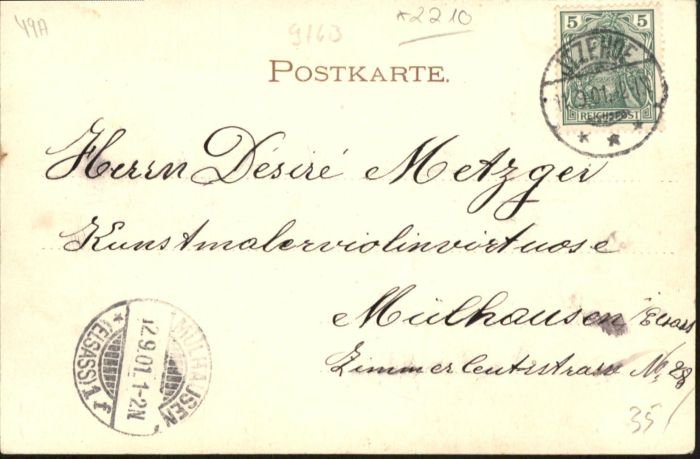 49A
9163
*2210
POSTKARTE.
5 5
REICHSPOST
ITZEHOE
Herrn Désiré Metzger
Kunstmalerviolinvirtuose
Mülhausen Elsass
Zimmerleutsstrasse No 28
MÜLHAUSEN
12.9.01.1-2N
(ELSASS) 1 f
35